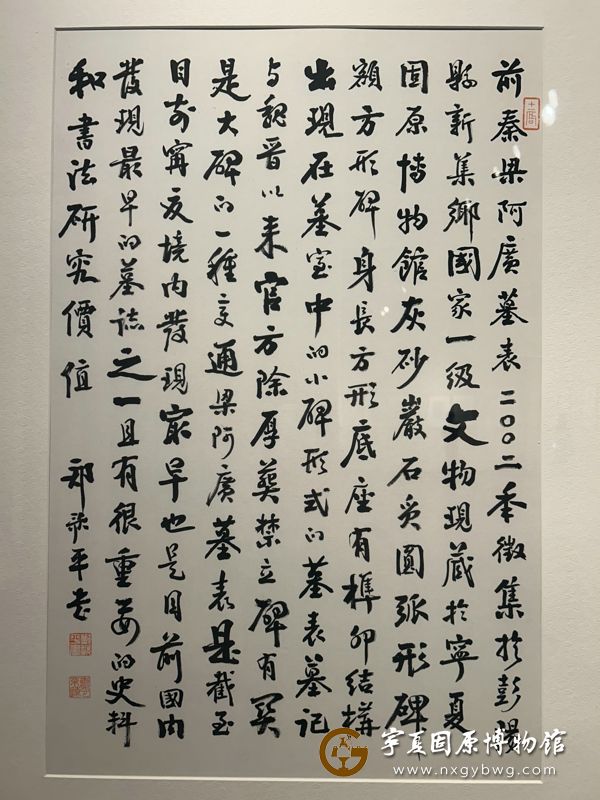 前秦梁阿廣墓表二〇〇二年徵集於彭陽
縣新集鄉國家一级文物現藏於寧夏
固原博物館灰砂巖石质圓弧形碑
額方形碑身長方形底座有榫卯结構
出現在墓室中的小碑形式的墓表墓记
与魏晋以来官方除厚葬禁立碑有関
是大碑的一種变通梁阿广墓表是截至
目前寧夏境内發現最早也是目前國内
發現最早的墓誌之一且有很重要的史料
和書法研究價值
平书
宁夏固原博物馆
www.nxgybwg.com